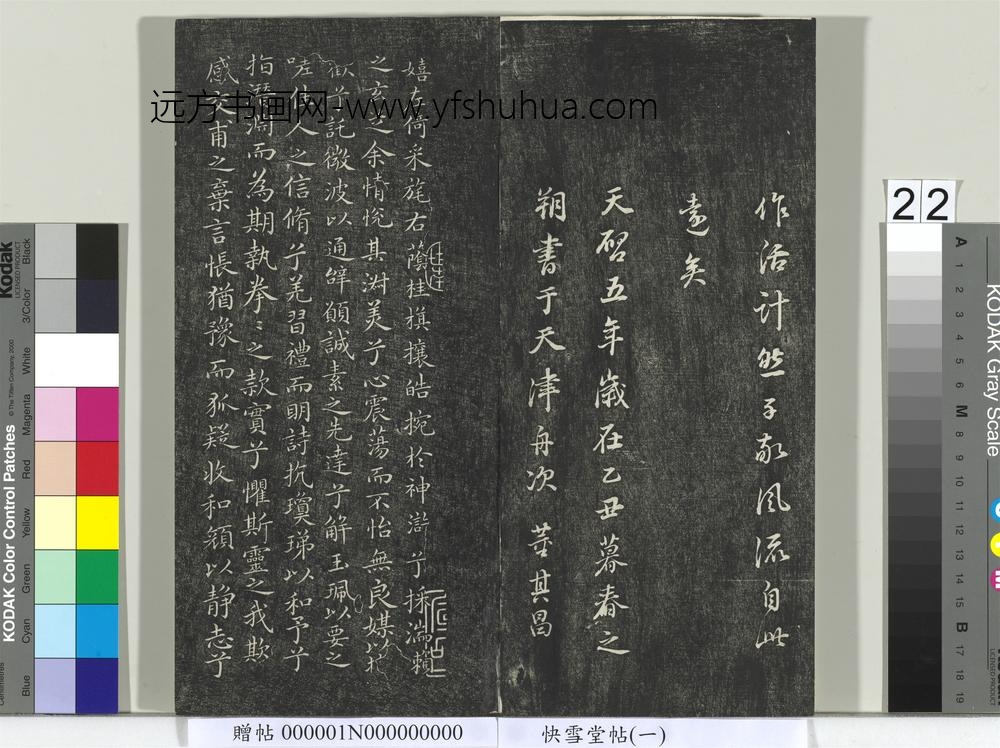 作活計然子敬風流自此
遠矣
天啓五年歲在乙丑暮春之
朔書于天津舟次 董其昌
嬉左倚采旄右蔭桂旗攘皓捥於神滸兮採湍瀨
之玄芝余情悅其淑美兮心震蕩而不怡無良媒以接
懽兮託微波以通辭願誠素之先達兮解玉珮以要之
嗟佳人之信脩兮羌習禮而明詩抗瓊珶以和予兮
指潛淵而為期執拳〻之款實兮懼斯靈之我欺
感交甫之棄言悵猶豫而狐疑收和顏以靜志兮
远方书画网-www.yfshuhua.com
贈帖 000001N000000000
快雪堂帖(一)
22
Kodak
LICENSED PRODUCT
KODAK Color Control Patches
© The Tiffen Company, 2000
Blue
Cyan
Green
Yellow
Red
Magenta
White
3/Color
Black
KODAK Gray Scale
A 1 2 3 4 5 6 M 8 9 10 11 12 13 14 15 B 17 18 19